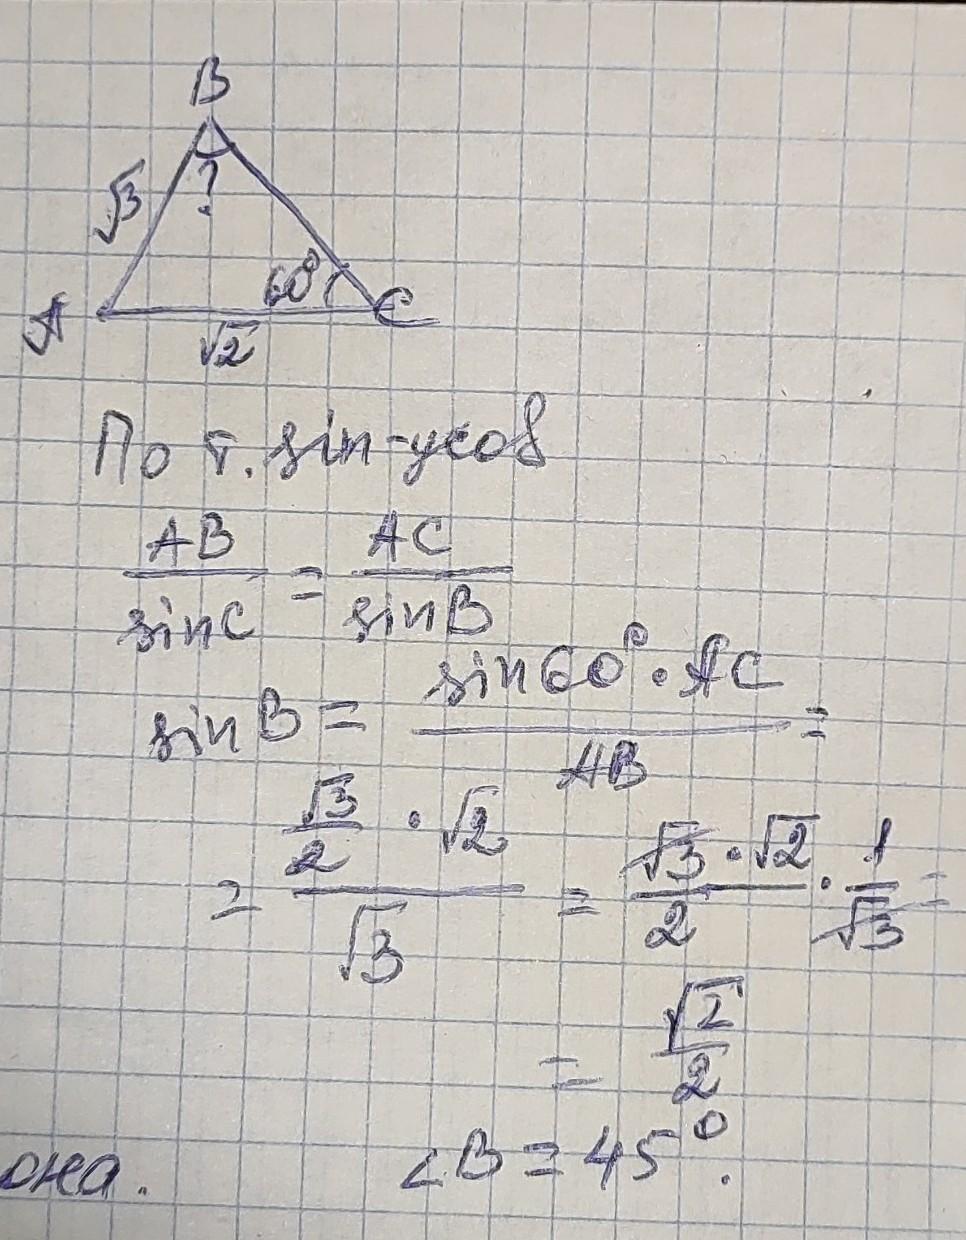 B
√3
?
60°
A
C
√2
По т. sin-усов
AB/sinC = AC/sinB
sinB = sin60° · AC / AB =
= √3/2 · √2 / √3 = √3 · √2 / 2 · 1/√3 =
= √2/2
∠B = 45°.
она.